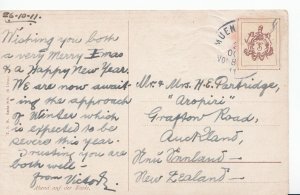 26-10-11.
Wishing you both
a very Merry Xmas
& a Happy New Year.
We are now await-
ing the approach
of Winter which
is expected to be
severe this year.
Trusting you are
both well
from Victor
MUEN
Mr. & Mrs. H.E. Partridge,
"Aropiri"
Grafton Road,
Auckland,
New Zealand